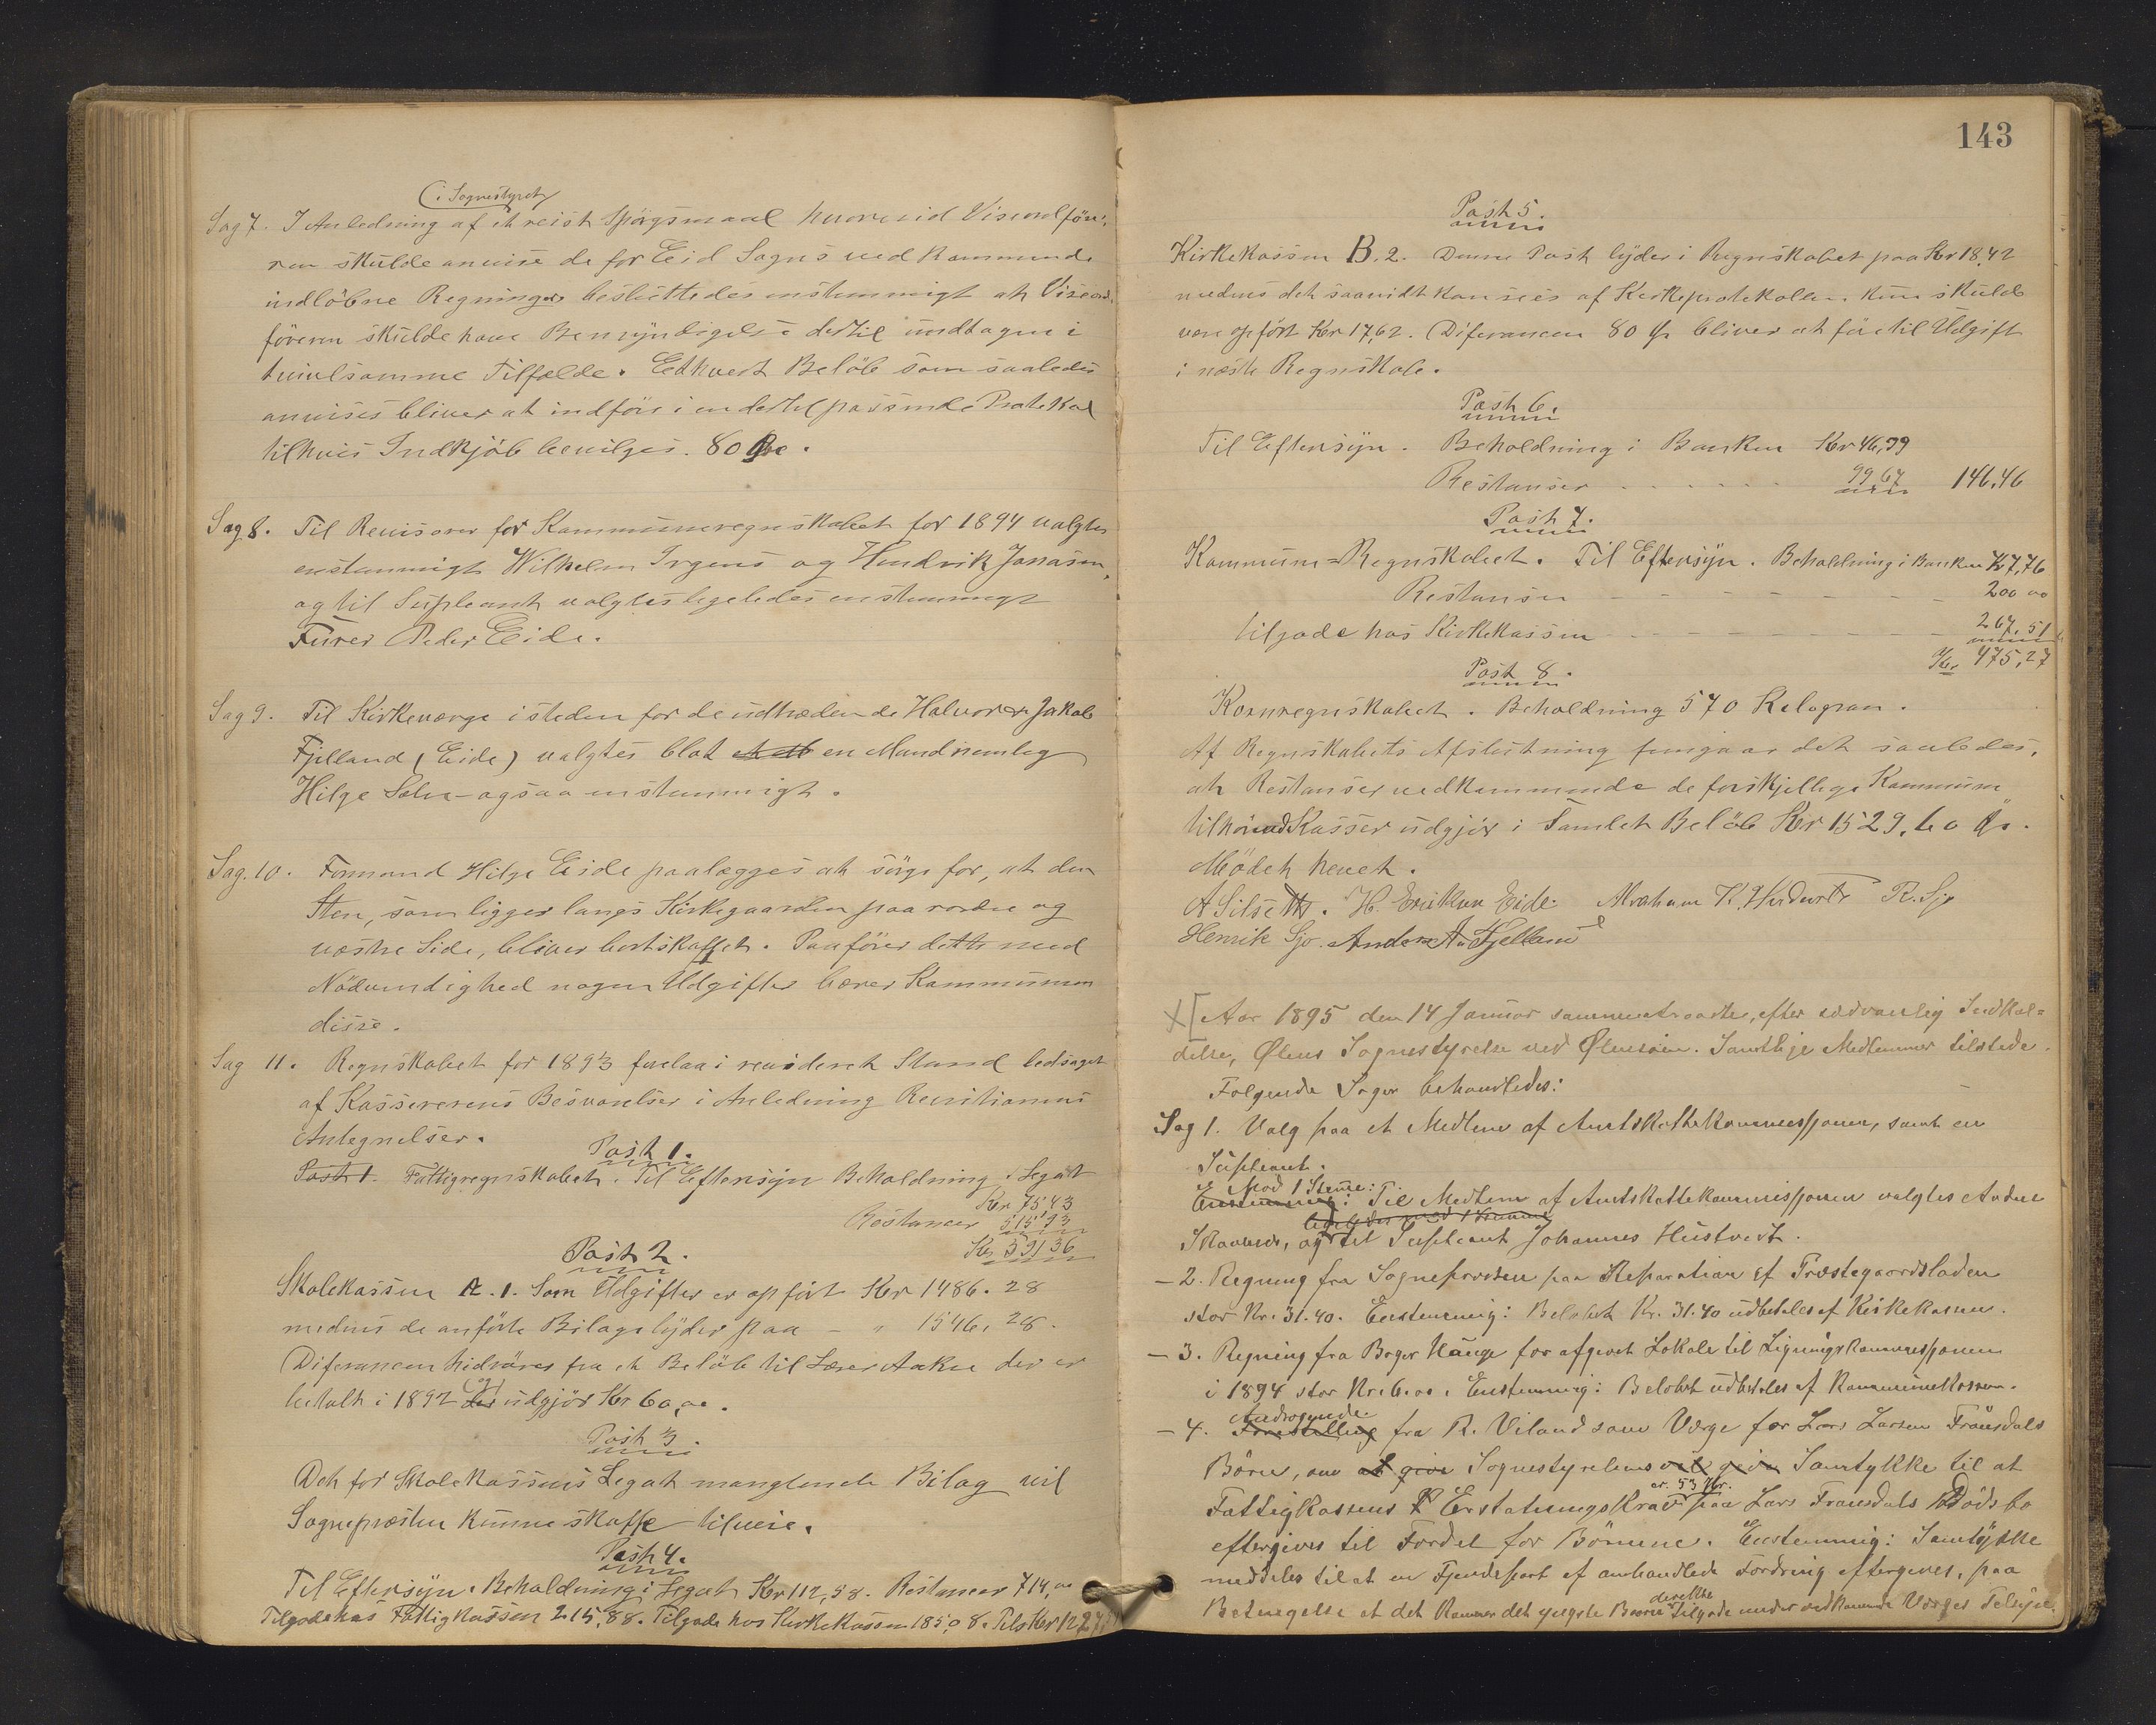 (i Sognestyret)
Sag 7. I Anledning af et reist Spørgsmaal hvorvid Viseordfør-
ren skulde anvise de for Eid Sogns vedkommende
indløbne Regninger besluttedes enstemmigt at Viseord-
føreren skulde have Bemyndigelse dertil undtagen i
tvivlsomme Tilfælde. Ethvert Beløb som saaledes
anvises bliver at indføres i en dertil passende Protokol
tilhvis Indkjøb bevilges. 80 Øre.
Sag 8. Til Revisorer for Kommuneregnskabet for 1894 valgtes
enstemmigt Wilhelm Irgens og Hendrik Jonasen,
og til Supleant valgtes ligeledes enstemmigt
Furer Peder Eide.
Sag 9. Til Kirkeværge isteden for de udtrædende Halvor Jakob
Fjelland (Eide) valgtes blot en Mand nemlig
Hilge - ogsaa enstemmigt.
Sag. 10. Formand Hilge Eide paalægges at sørge for, at den
Sten, som ligger langs Kirkegaarden paa nordre og
væstre Side, bliver bortskaffet. Paafører dette med
Nødvendighed nogen Udgifter bærer Kommunen
disse.
Sag 11. Regnskabet for 1893 forelaa i revideret Stand ledsaget
af Kassererens Besvarelser i Anledning Revitionens
Antegnelser.
Post 1.
Post 1. Fattigregnskabet. Til Eftersyn Beholdning i Legat
Kr 75 43
Restancer 515 93
Kr 591 36
Post 2.
Skolekassen A. 1. Som Udgifter er opført Kr 1486. 28
medens de anførte Bilage lyder paa - " 1546, 28.
Diferansen hidrører fra et Beløb til Lærer Aakre der er
betalt i 1892 og udgjør Kr 60,00.
Post 3.
Det for Skolekassens Legat manglende Bilag vil
Sognepræsten kunne skaffe tilveie.
Post 4.
Til Eftersyn. Beholdning i Legat Kr 112,58. Restancer 714,00
Tilgode hos Fattigkassen 215,88. Tilgode hos Kirkekassen 185,08.
143
Post 5.
Kirkekassen B. 2. Denne Post lyder i Regnskabet paa Kr 18,42
medens det saavidt kan sees af Kirkeprotokollen kun skulde
være opført Kr 17,62. Diferancen 80 Ør bliver at føre til Udgift
i næste Regnskab.
Post 6.
Til Eftersyn. Beholdning i Banken Kr 46,79
Restanser - - - - - - 99 67 146,46
Post 7.
Kommune=Regnskabet. Til Eftersyn. Beholdning i Banken Kr 7,76
Restanser - - - - - - - - 200 00
tilgode hos Kirkekassen - - - - - - - - 267,51
Kr 475,27
Post 8.
Kornregnskabet. Beholdning 570 Kilogran.
Af Regnskabets Afslutning fremgaar det saaledes,
at Restanser vedkommende de forskjellige Kommunen
tilhørende Kasser udgjør i Samlet Beløb Kr 1529, 60 Ør.
Mødet hevet.
A Silseth. H. Eriksen Eide. Abraham K. Hustvedt R. Sjo
Henrik Sjo. Anders A. Fjelland
Aar 1895 den 14 Januar sammentraadte, efter sedvanlig Indkal=
delse, Ølens Sognestyrelse ved Ølensøen. Samtlige Medlemmer tilstede.
Følgende Sager behandledes:
Sag 1. Valg paa et Medlem af Amtskattekommissjonen, samt en
Supleant.
Mod 1 Stemme:
Enstemmig: Til Medlem af Amtskattekommissjonen valgtes Andne
ligeledes mod 1 Stemme
og til Supleant Johannes Hustvedt.
- 2. Regning fra Sognepresten paa Reparation af Præstegaardsladen
stor Kr. 31.40. Enstemmig: Beløbet Kr. 31.40 udbetales af Kirkekassen.
- 3. Regning fra Birger Hauge for afgivet Lokale til Ligningskommissjonen
i 1894 stor Kr. 6.00. Enstemmig: Beløbet udbetales af Kommunekassen.
Andragende
- 4. Forestilling fra R. Viland som Verge for Lars Larsen Frønsdals
Børn, om at give Sognestyrelsens vil give Samtykke til at
ca. 53 Kr.
Fattigkassens Erstatningskrav paa Lars Frønsdals Dødsbo
eftergives til Fordel for Børnene. Enstemmig: Samtykke
meddeles til at en Fjerdepart af omhandlede Fordring eftergives, paa
derefter
Betingelse at det kommer det yngste Barn tilgode under vedkommende Verges Tilsyn.